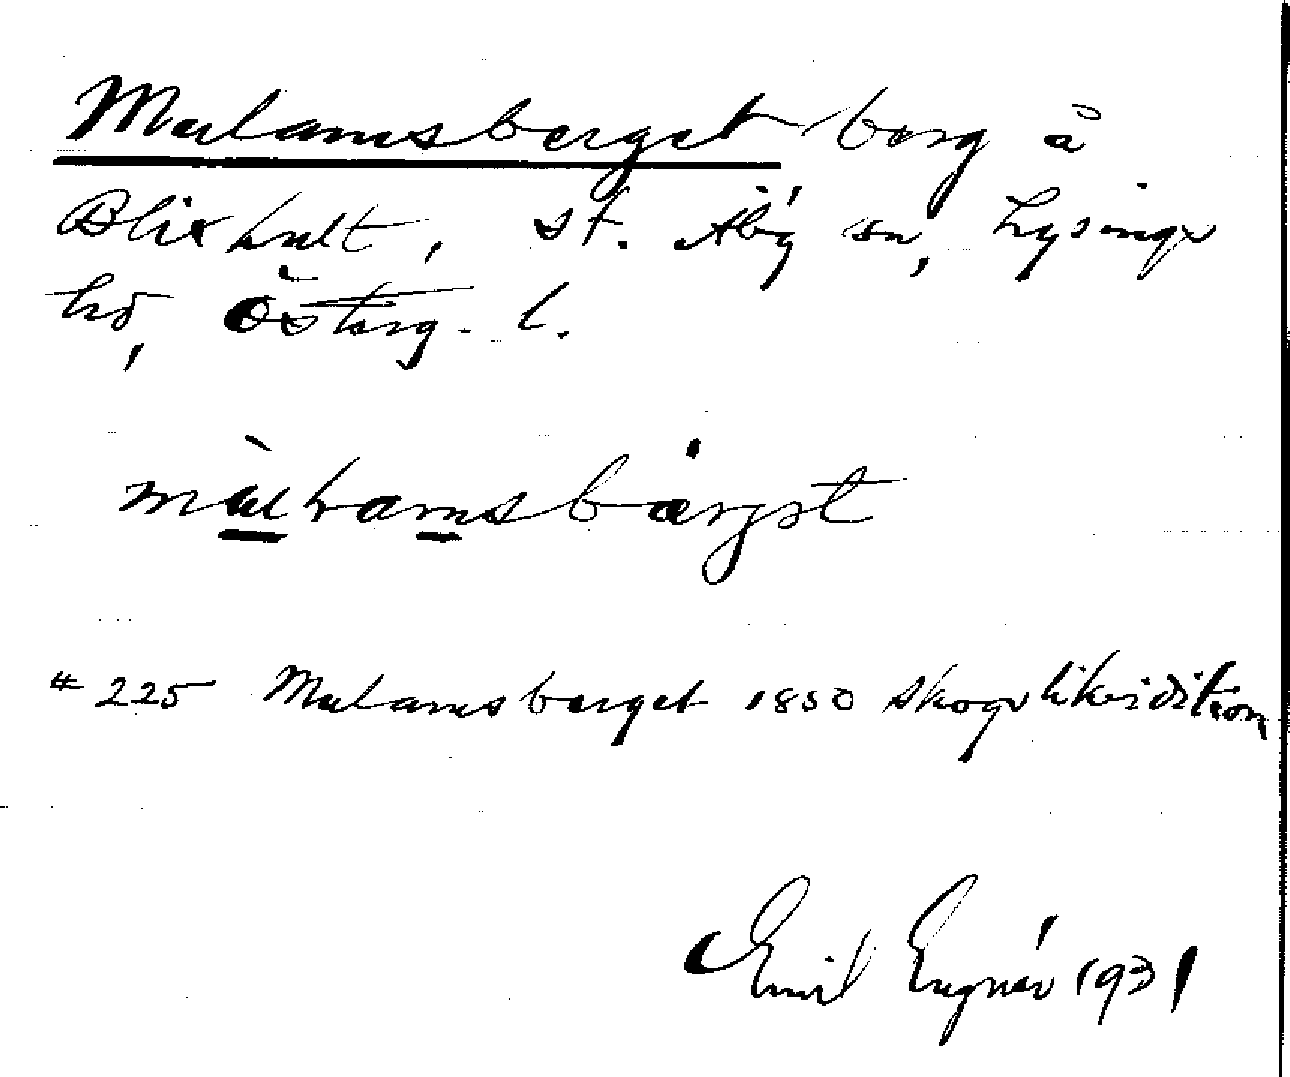 Mulamsberget berg å
Blixhult, St. Åby sn, Lysings
hd, Österg. l.
mùlramsbärgət
# 225 Mulamsberget 1850 skogslikvidition
Emil Engnér 1931